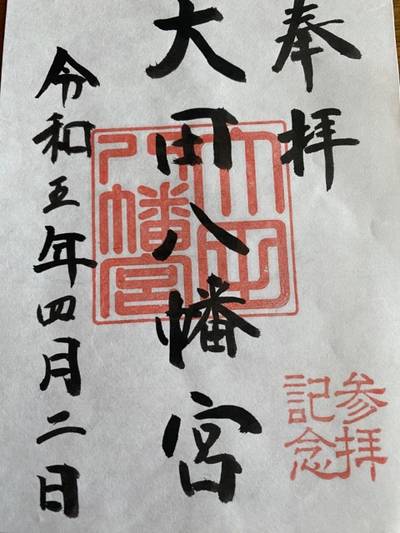 奉拝
大田八幡宮
令和五年四月二日
大田
八幡宮
参拝
記念